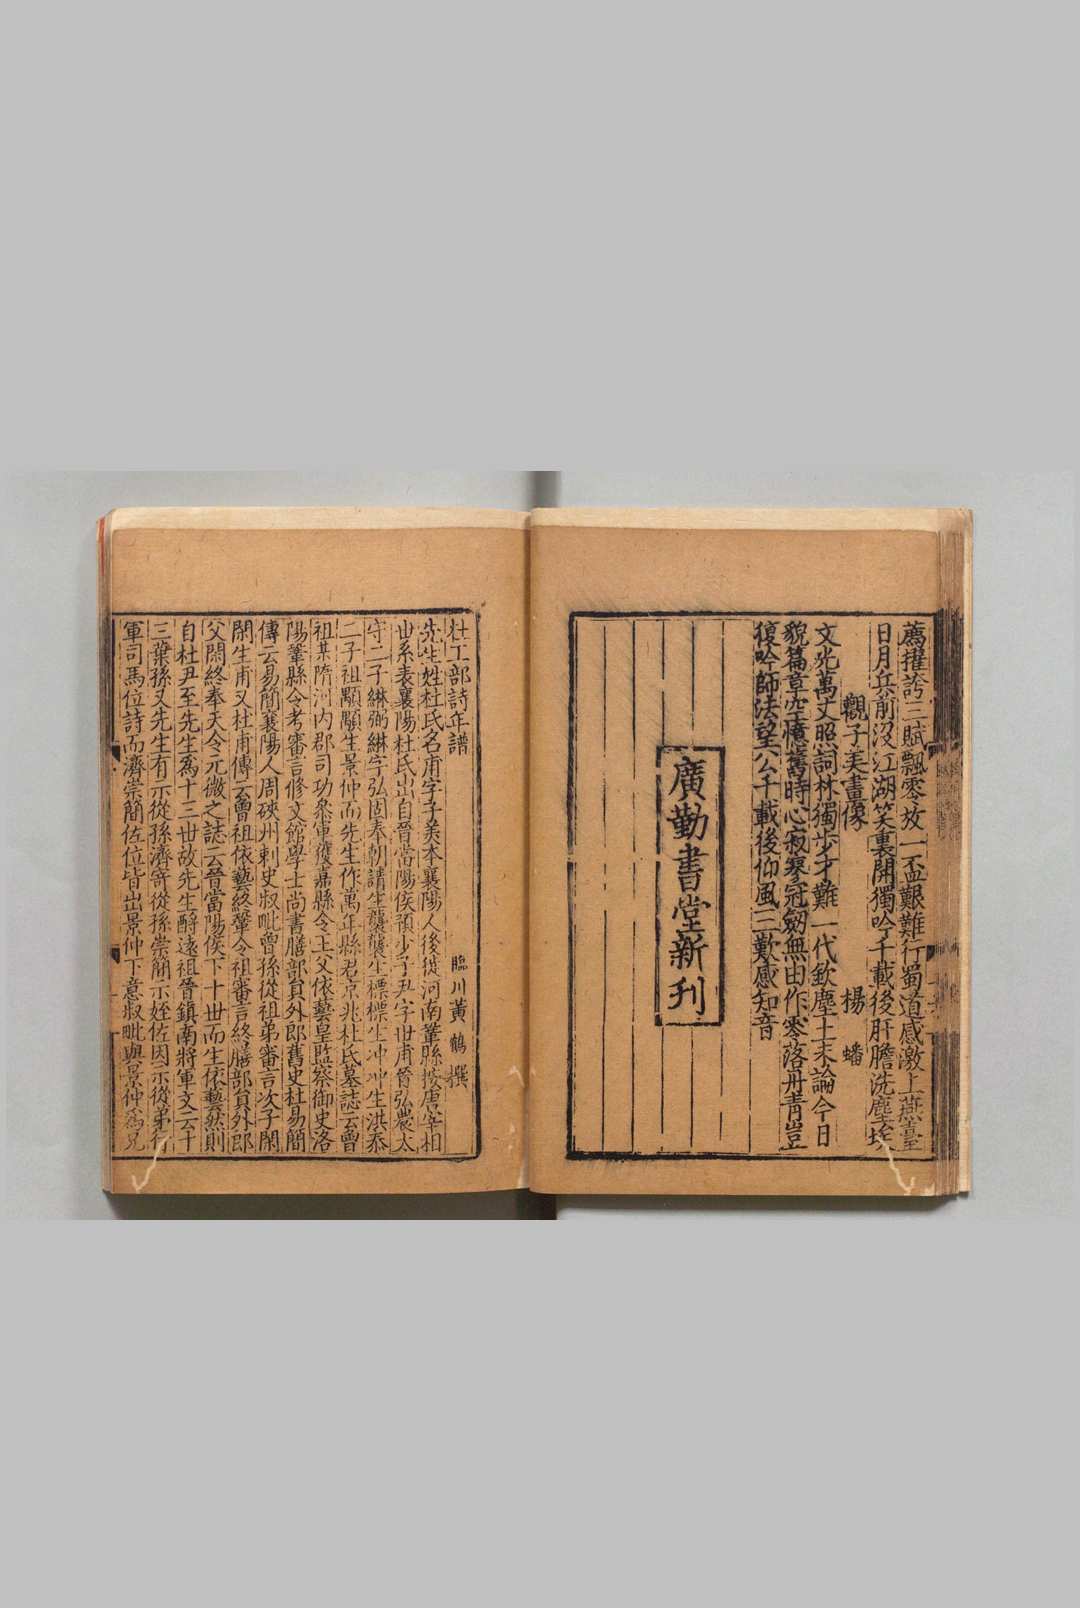 薦擢誇三賦飄零放一盃艱難行蜀道感激上燕臺
日月兵前沒江湖笑裏開獨吟千載後肝膽洗塵埃
觀子美畫像 楊蟠
文光萬丈照詞林獨步才難一代欽塵土未論今日
貌篇章空憶舊時心寂寥冠劔無由作零落丹青豈
復吟師法望公千載後仰風三歎感知音
廣勤書堂新刋
杜工部詩年譜
臨川黃鶴撰
先生姓杜氏名甫字子美本襄陽人後徙河南鞏縣按唐宰相
世系表襄陽杜氏出自晉當陽侯預少子尹字世甫晉弘農太
守二子綝弼綝字弘固奉朝請生襲襲生標標生冲冲生洪泰
二子祖顒顒生景仲而先生作萬年縣君京兆杜氏墓誌云曾
祖某隋河內郡司功叅軍獲嘉縣令王父依藝皇監察御史洛
陽鞏縣令考審言修文館學士尚書膳部貟外郎舊史杜易簡
傳云易簡襄陽人周硤州刺史叔毗曾孫從祖弟審言次子閑
閑生甫又杜甫傳云曾祖依藝終鞏令祖審言終膳部貟外郎
父閑終奉天令元微之誌云晉當陽侯下十世而生依藝然則
自杜尹至先生爲十三世故先生酹遠祖晉鎮南將軍文云十
三葉孫又先生有示從孫濟寄從孫崇簡示姪佐因示從弟行
軍司馬位詩而濟崇簡佐位皆出景仲下意叔毗與景仲爲兄